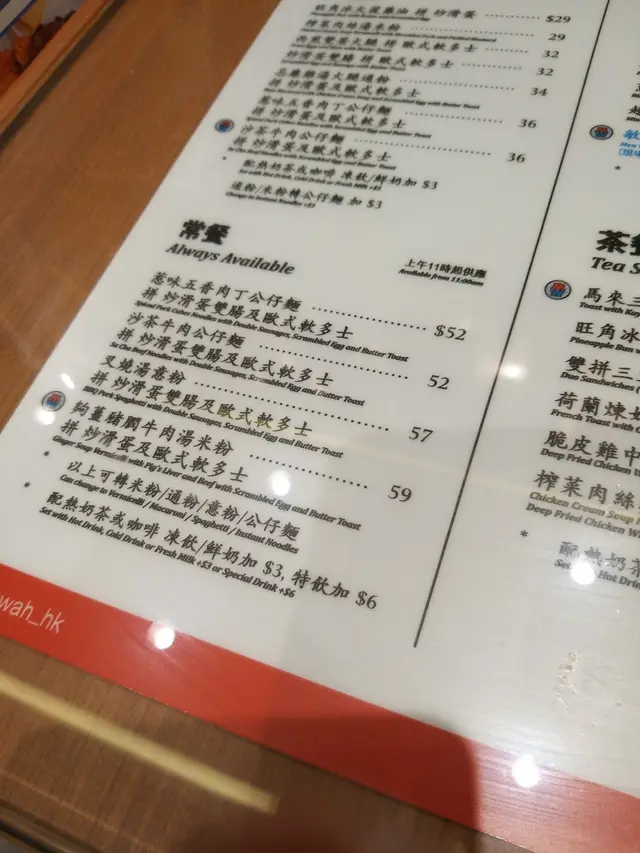 $29
29
32
拼 歐式軟多士
32
34
拼 炒滑蛋及歐式軟多士
蔥味五香肉丁公仔麵
36
拼 炒滑蛋及歐式軟多士
沙茶牛肉公仔麵
36
拼 炒滑蛋及歐式軟多士
配熱奶茶或咖啡 凍飲/鮮奶加 $3
Set with Hot Drink, Cold Drink or Fresh Milk +$3
通粉/米粉轉公仔麵 加 $3
Change to Instant Noodles +$3
常餐
Always Available
上午11時起供應
Available from 11:00am
蔥味五香肉丁公仔麵
$52
拼 炒滑蛋雙腸及歐式軟多士
Spiced Pork Cubes Noodles with Double Sausages, Scrambled Egg and Butter Toast
沙茶牛肉公仔麵
52
拼 炒滑蛋雙腸及歐式軟多士
Sa Cha Beef Noodles with Double Sausages, Scrambled Egg and Butter Toast
叉燒湯意粉
57
拼 炒滑蛋雙腸及歐式軟多士
BBQ Pork Spaghetti with Double Sausages, Scrambled Egg and Butter Toast
薑豬膶牛肉湯米粉
59
拼 炒滑蛋及歐式軟多士
Ginger Soup Vermicelli with Pig's Liver and Beef with Scrambled Egg and Butter Toast
* 以上可轉米粉/通粉/意粉/公仔麵
Can change to Vermicelli / Macaroni / Spaghetti / Instant Noodles
* 配熱奶茶或咖啡 凍飲/鮮奶加 $3, 特飲加 $6
Set with Hot Drink, Cold Drink or Fresh Milk +$3 or Special Drink +$6
wah_hk
敏
茶餐
Tea S
馬來三
Toast with Kay
旺角冰
Pineapple Bun
雙拼三
Duo Sandwiches (
荷蘭煉奶
French Toast with C
脆皮雞中
Deep Fried Chicken W
榨菜肉絲
Chicken Cream Soup
Deep Fried Chicken W
* 配熱奶茶
Set Hot Drin